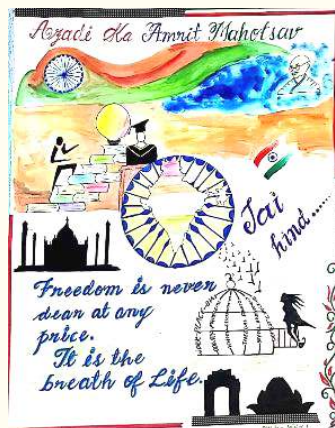 Azadi Ka Amrit Mahotsav
Jai
hind.....
Freedom is never
dear at any
price.
It is the
breath of Life.